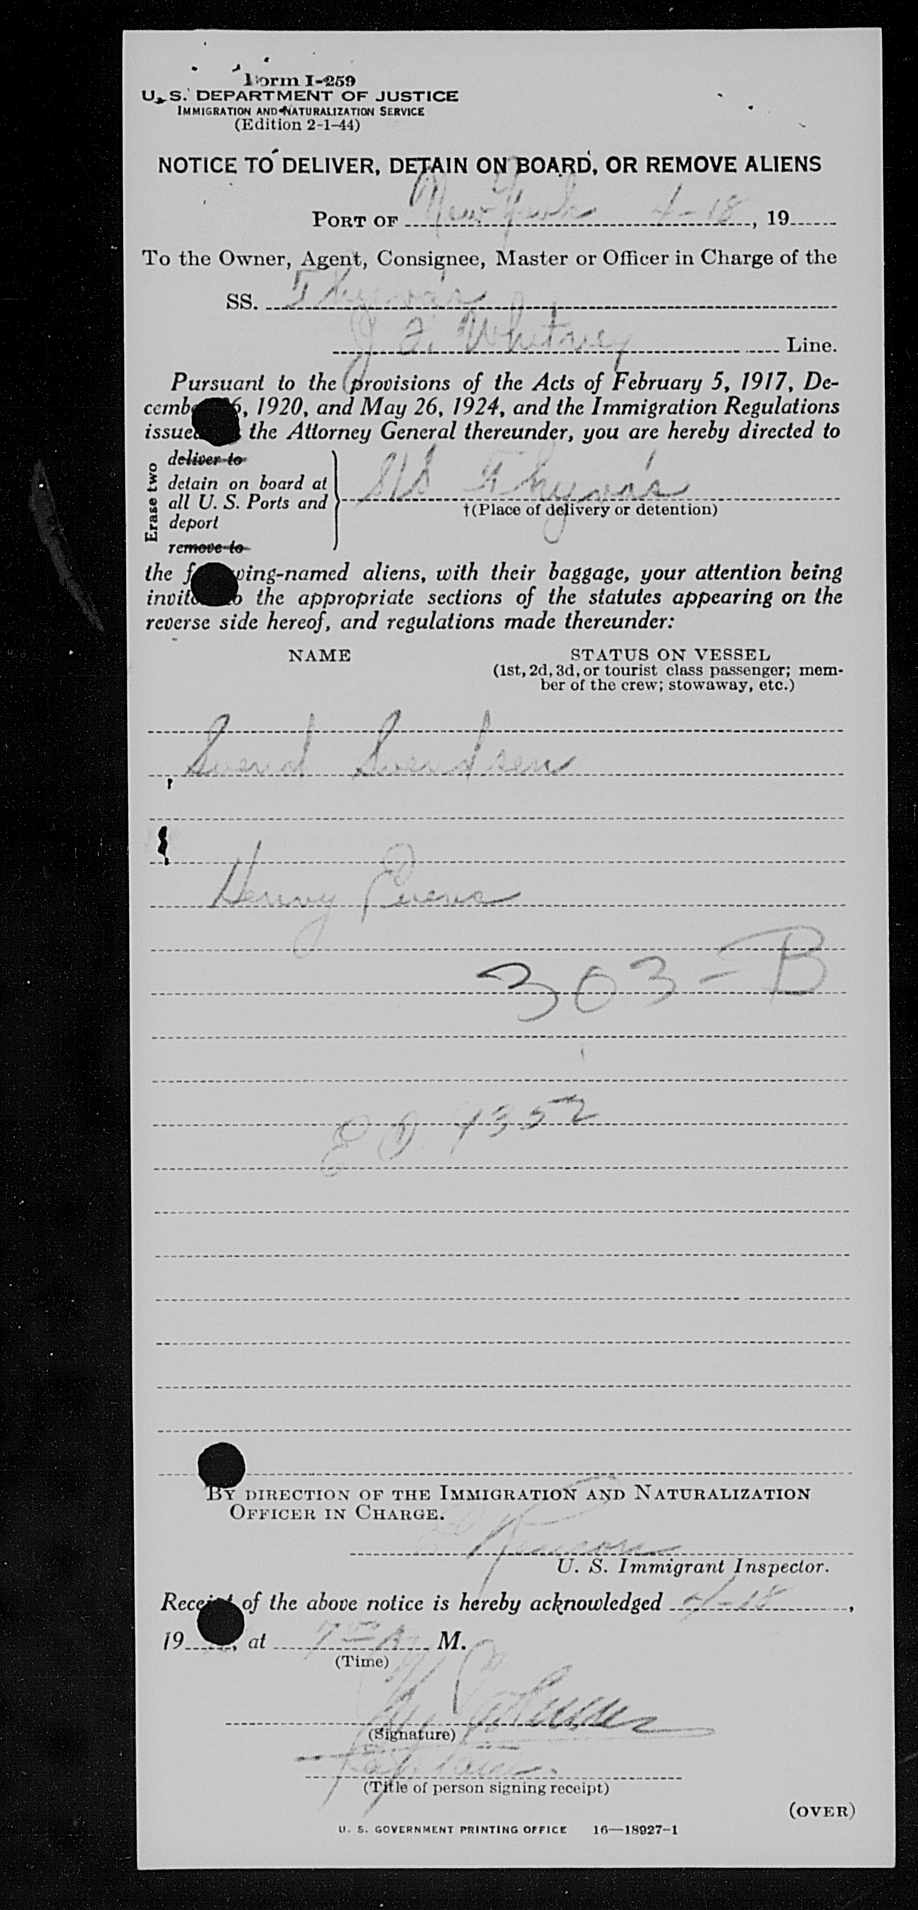 Form I-259
U. S. DEPARTMENT OF JUSTICE
IMMIGRATION AND NATURALIZATION SERVICE
(Edition 2-1-44)
NOTICE TO DELIVER, DETAIN ON BOARD, OR REMOVE ALIENS
PORT OF New York 4-18, 19
To the Owner, Agent, Consignee, Master or Officer in Charge of the
SS. Thyra's
J. F. Whitney Line.
Pursuant to the provisions of the Acts of February 5, 1917, De-
cemb 6, 1920, and May 26, 1924, and the Immigration Regulations
issue the Attorney General thereunder, you are hereby directed to
Erase two
deliver to
detain on board at
all U. S. Ports and
deport
remove to
S/S
†(Place of delivery or detention)
the f wing-named aliens, with their baggage, your attention being
invite to the appropriate sections of the statutes appearing on the
reverse side hereof, and regulations made thereunder:
NAME STATUS ON VESSEL
(1st, 2d, 3d, or tourist class passenger; mem-
ber of the crew; stowaway, etc.)
Svend Svendsen
Henny
303-B
4352
BY DIRECTION OF THE IMMIGRATION AND NATURALIZATION
OFFICER IN CHARGE.
U. S. Immigrant Inspector.
Receipt of the above notice is hereby acknowledged 4-18,
19, at 7 A M.
(Time)
(Signature)
Captain.
(Title of person signing receipt)
(OVER)
U. S. GOVERNMENT PRINTING OFFICE 16—18927-1